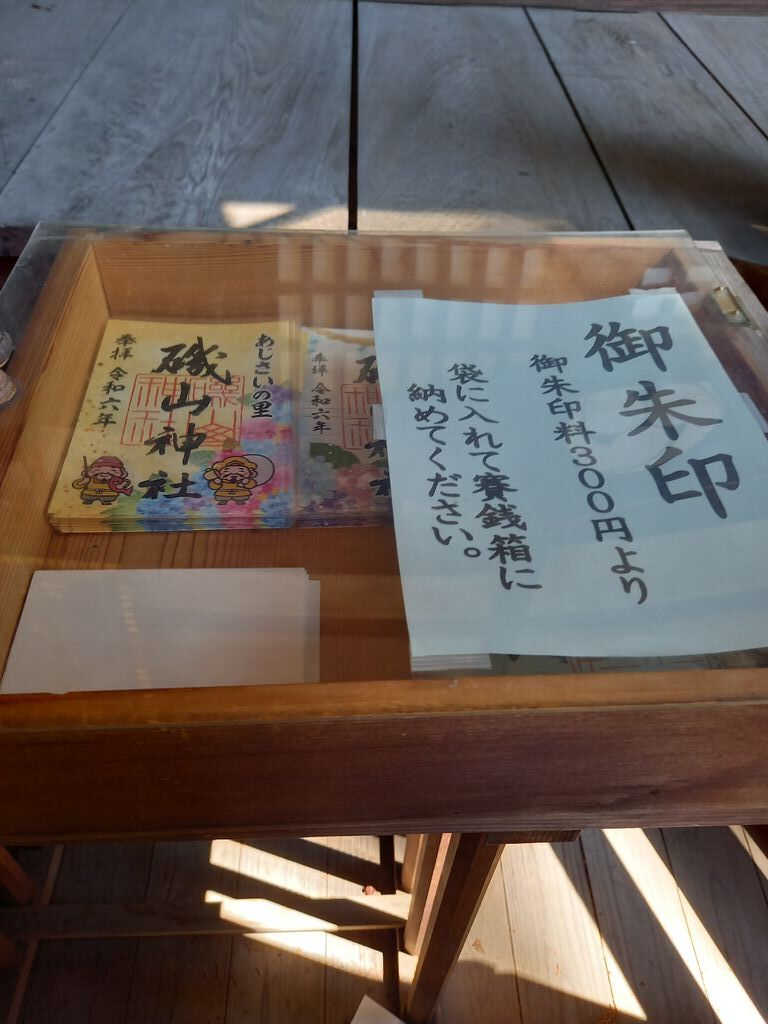 御朱印
御朱印料300円より
袋に入れて賽銭箱に
納めてください。
あじさいの里
磯山神社
奉拝 令和六年
磯山
神社
奉拝 令和六年